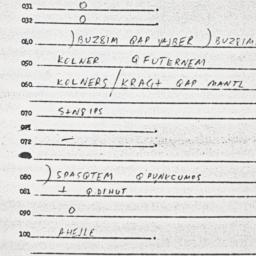 031 O .
032 O .
040 ) BUZSIM QAP WAJBER ) BUZSIM
050 KOLNER QFUTERNEM
060 KOLNERS / KRAGH QAP MANTL
070 S+NSIPS
071 .
072 — .
080 ) SPASQTEM QPUNKCUMOS
081 + Q.DIHUT
090 O
100 AHEJLE .